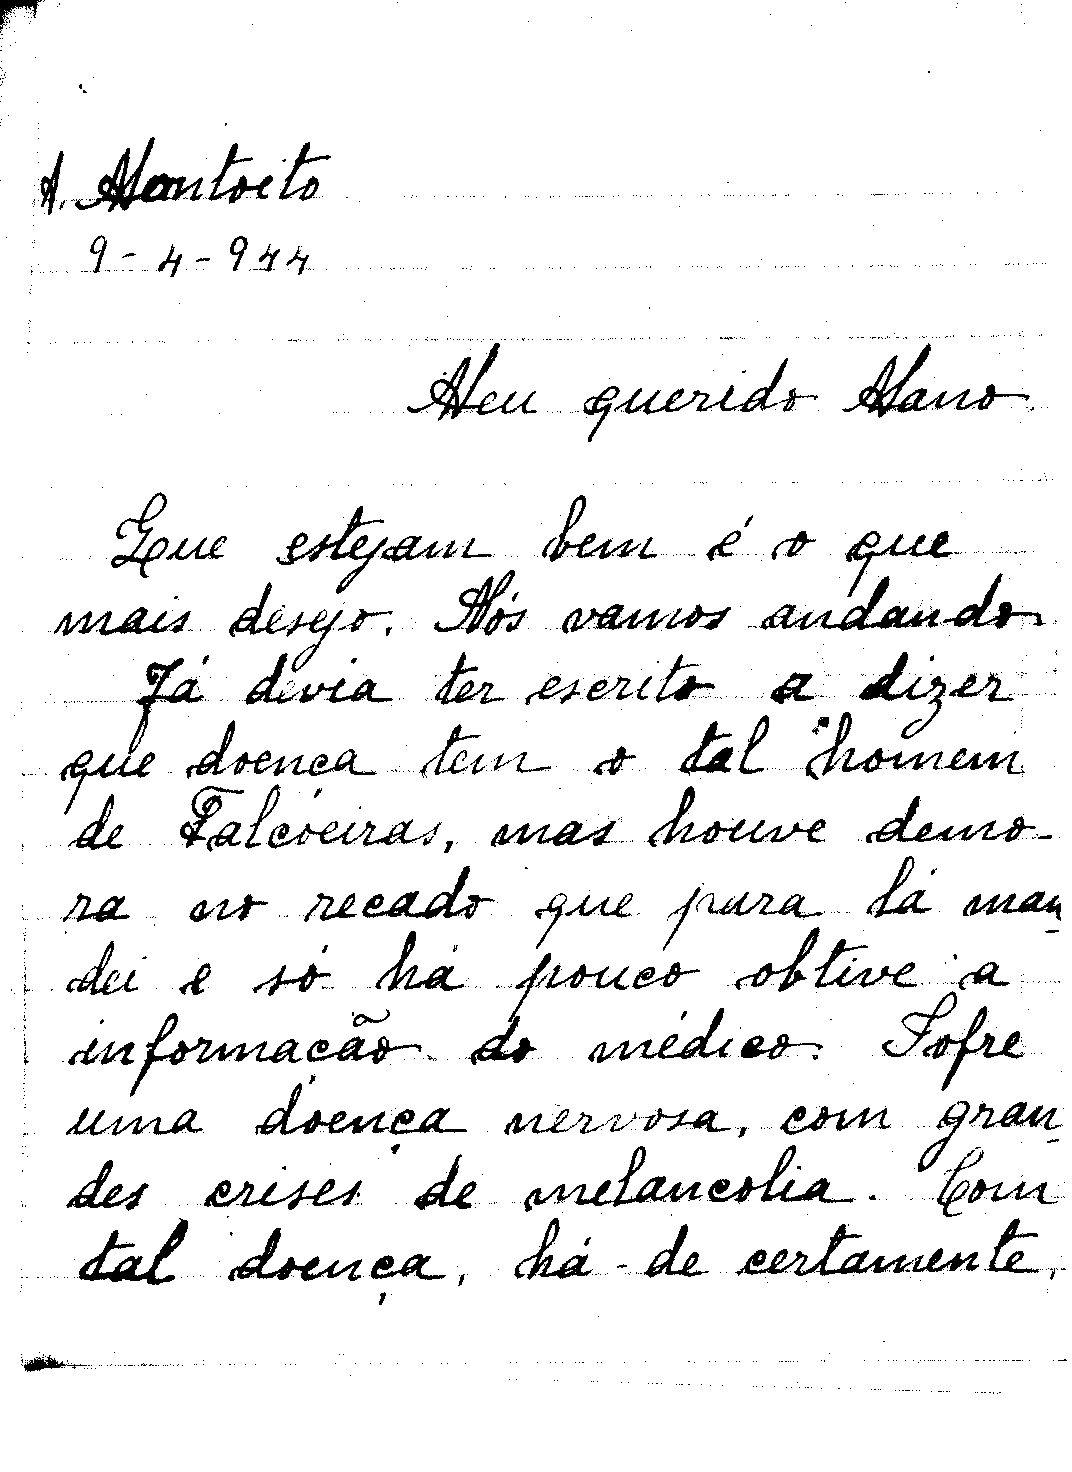 A. Montoito
9-4-944
Meu querido Mano
Que estejam bem é o que
mais desejo. Nós vamos andando
Já devia ter escrito a dizer
que doença tem o tal homem
de Falcoeiras, mas houve demo-
ra no recado que para lá man-
dei e só há pouco obtive a
informação do médico. Sofre
uma doença nervosa, com gran-
des crises de melancolia. Com
tal doença, há-de certamente,